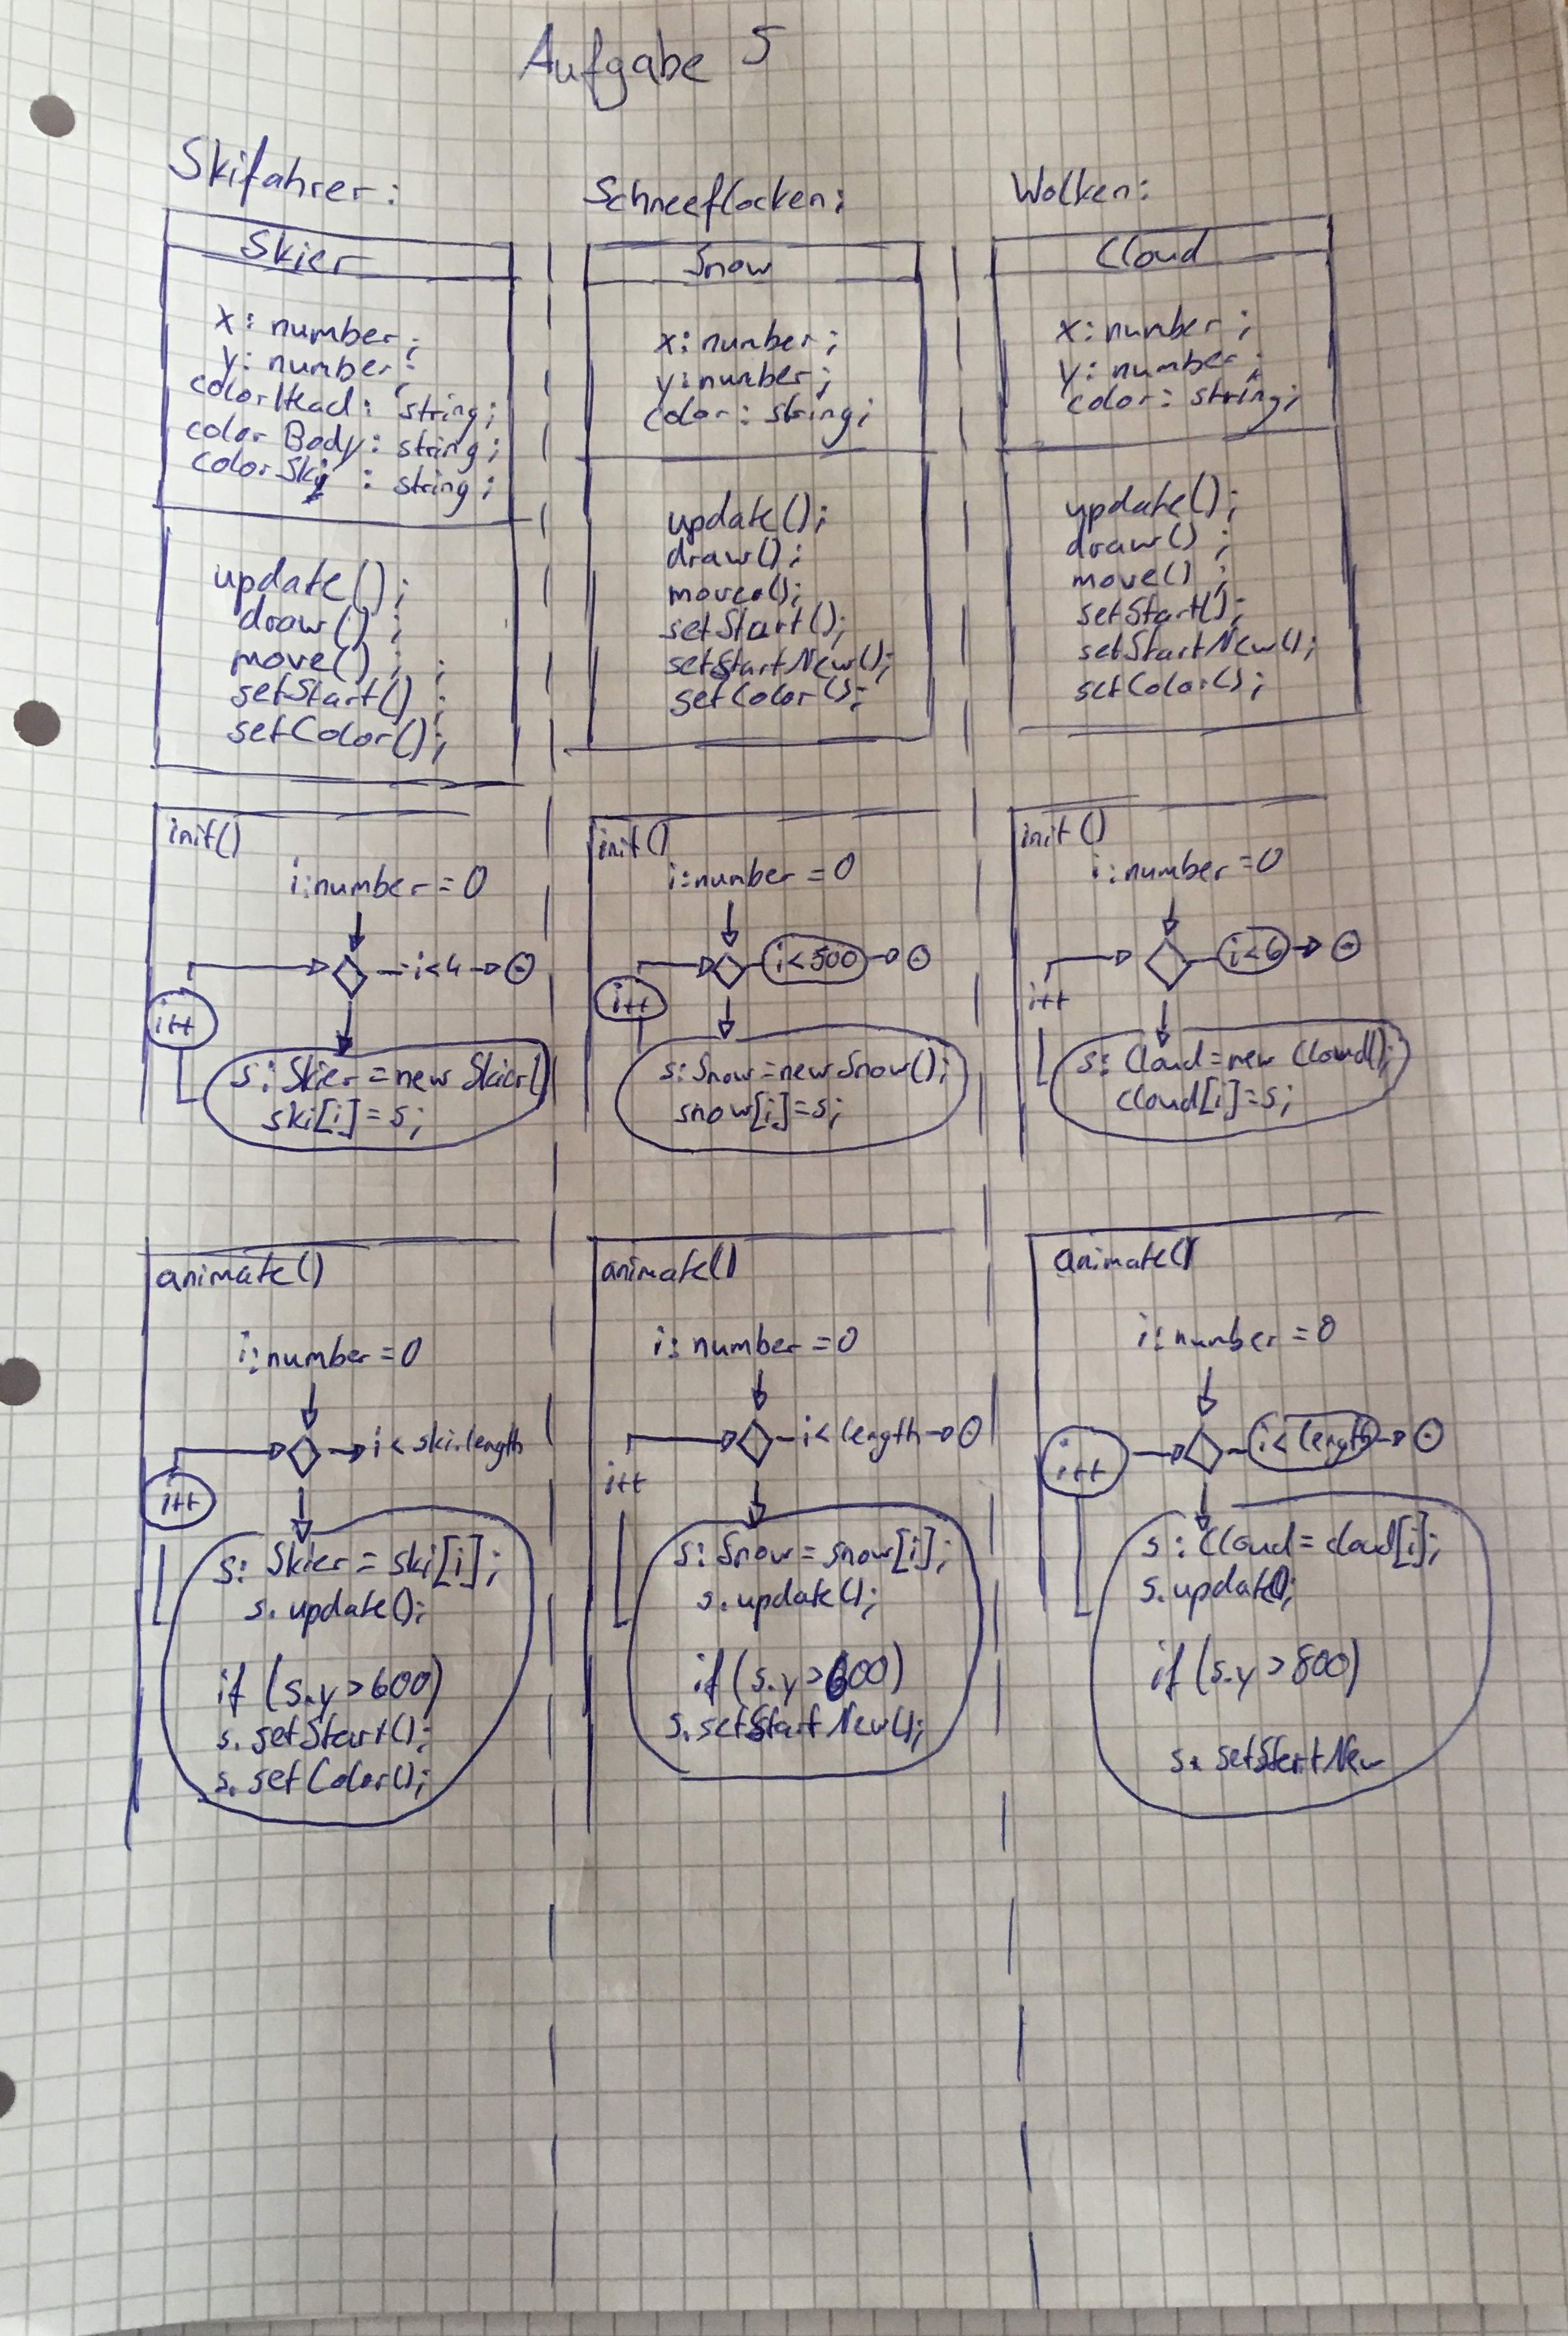 Aufgabe 5
Skifahrer:
Skier
x: number;
y: number;
colorHead: string;
colorBody: string;
colorSki: string;
update();
draw();
move();
setStart();
setColor();
init()
i:number = 0
i<4
i++
s: Skier = new Skier()
ski[i] = s;
animate()
i:number = 0
i< ski.length
i++
s: Skier = ski[i];
s. update();
if (s.y > 600)
s. setStart();
s. setColor();
Schneeflocken:
Snow
x: number;
y: number;
color: string;
update();
draw();
move();
setStart();
setStartNew();
setColor();
init()
i:number = 0
i<500
i++
s: Snow = new Snow();
snow[i] = s;
animate()
i: number = 0
i< length
i++
s: Snow = snow[i];
s. update();
if (s.y > 600)
s. setStartNew();
Wolken:
Cloud
x: number;
y: number;
color: string;
update();
draw();
move();
setStart();
setStartNew();
setColor();
init()
i: number = 0
i<6
i++
s: Cloud = new Cloud();
cloud[i] = s;
animate()
i: number = 0
i< length
i++
s: Cloud = cloud[i];
s. update();
if (s.y > 800)
s. setStartNew